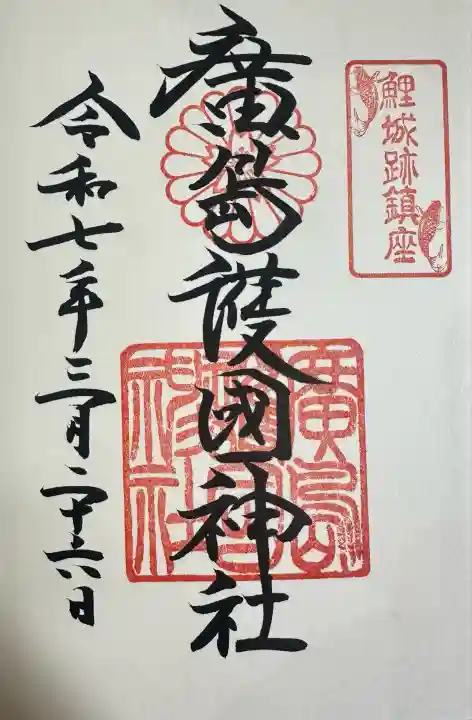 鯉城跡鎮座
廣島護國神社
廣島護國神社
令和七年三月二十六日